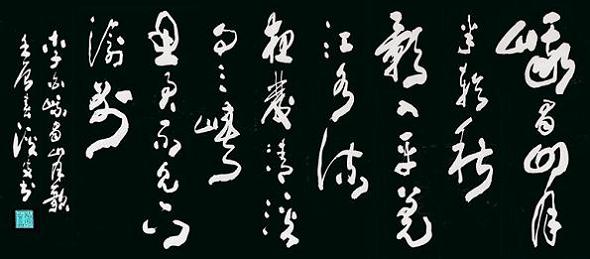 峨眉山月
半輪秋
影入平羌
江水流
夜發清溪
向三峽
思君不見下
渝州
李白峨眉山月歌
壬辰書